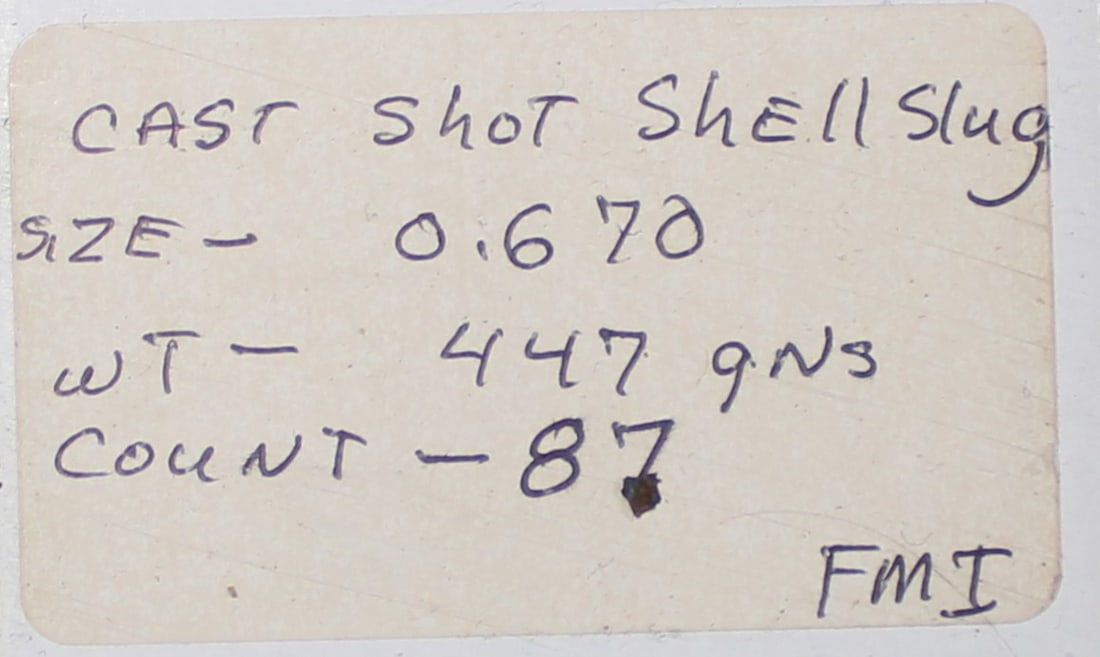 CAST ShOT ShEll Slug
SIZE - 0.670
WT - 447 gNs
COUNT - 87
FMI